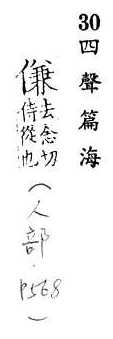 30四聲篇海
傔去念切
侍從也
（人部．P568）